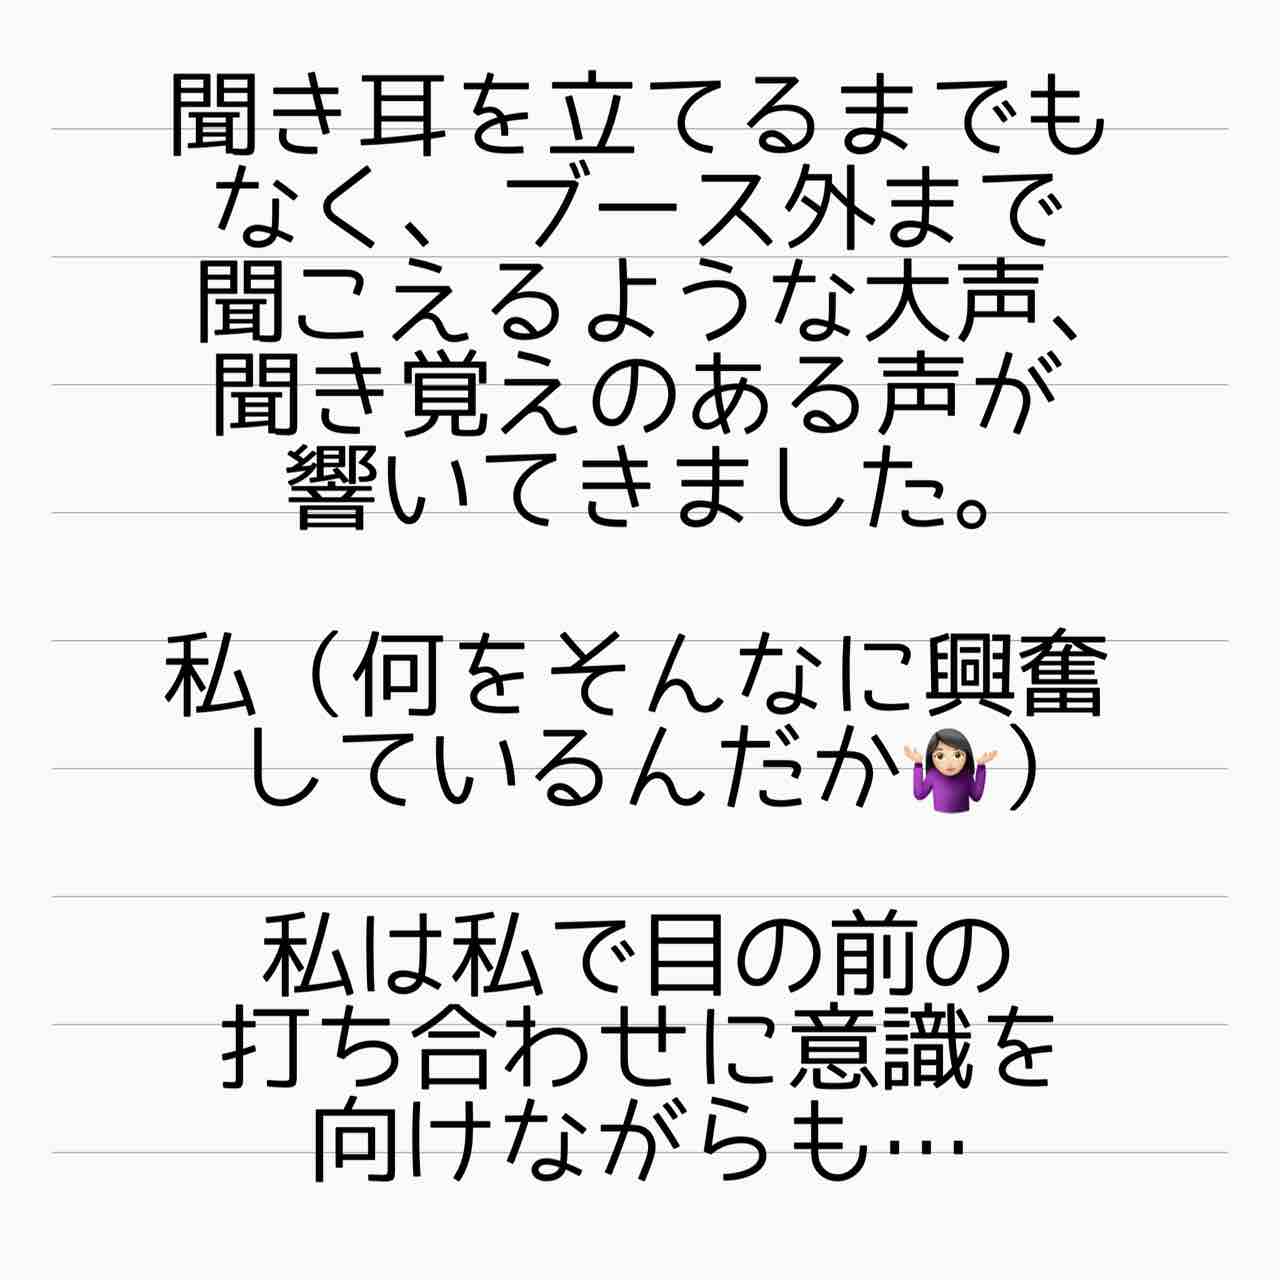 聞き耳を立てるまでも
なく、ブース外まで
聞こえるような大声、
聞き覚えのある声が
響いてきました。
私（何をそんなに興奮
しているんだか🤷🏻‍♀️）
私は私で目の前の
打ち合わせに意識を
向けながらも…